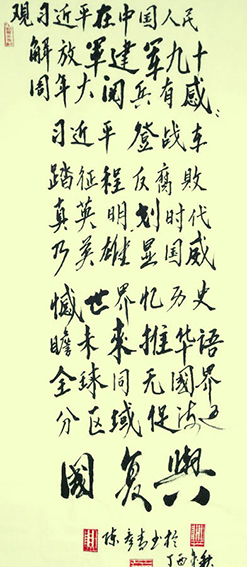 观习近平在中国人民
解放军建军九十
周年大阅兵有感：
习近平 登战车
踏征程 反腐败
真英明 划时代
乃英雄 显国威
憾世界 忆历史
瞻未来 推华语
全球同 无国界
分区域 促海
國复興
陈
丁酉年秋